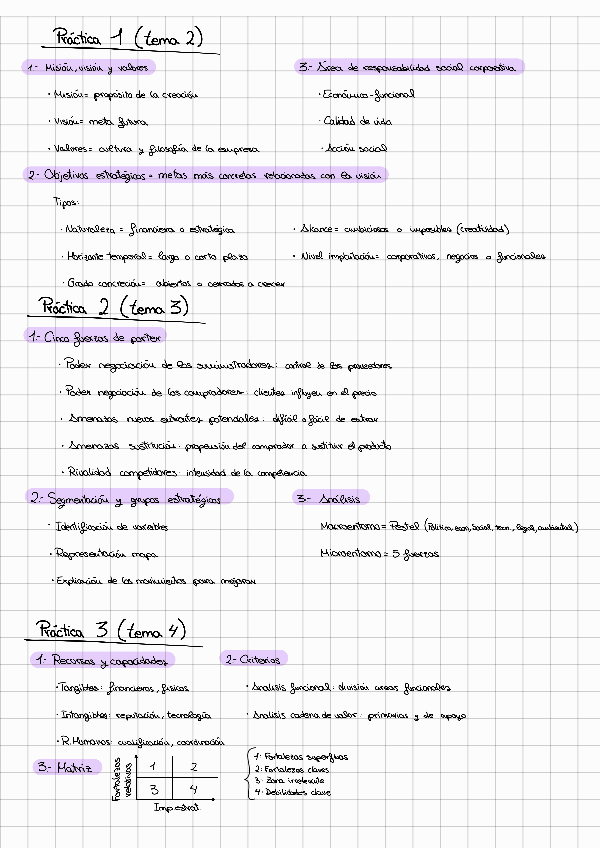 Práctica 1 (tema 2)
1.- Misión, visión y valores
• Misión = propósito de la creación
• Visión = meta futura
• Valores = cultura y filosofía de la empresa
3.- Área de responsabilidad social corporativa
• Económico-funcional
• Calidad de vida
• Acción social
2- Objetivos estratégicos = metas más concretas relacionadas con la visión
Tipos:
• Naturaleza = financiera o estratégica
• Horizonte temporal = largo o corto plazo
• Grado concreción = abiertos o cerrados a crecer
• Alcance = ambiciosos o imposibles (creatividad)
• Nivel implantación = corporativos, negocios o funcionales
Práctica 2 (tema 3)
1.- Cinco fuerzas de porter
• Poder negociación de los suministradores: control de los proveedores
• Poder negociación de los compradores: clientes influyen en el precio
• Amenazas nuevos entrantes potenciales: difícil o fácil de entrar
• Amenazas sustitución: propensión del comprador a sustituir el producto
• Rivalidad competidores: intensidad de la competencia
2.- Segmentación y grupos estratégicos
• Identificación de variables
• Representación mapa
• Explicación de los movimientos para mejorar
3.- Análisis
Macroentorno = Pestel (Político, econ, social, tecn., legal, ambiental)
Microentorno = 5 fuerzas
Práctica 3 (tema 4)
1.- Recursos y capacidades
• Tangibles: financieros, físicos
• Intangibles: reputación, tecnología
• R. Humanos: cualificación, coordinación
2- Criterios
• Analisis funcional: división areas funcionales
• Analisis cadena de valor: primarias y de apoyo
3.- Matriz
Fortalezas relativas
1 2
3 4
Imp estrat
1· Fortalezas superfluas
2· Fortalezas claves
3· Zona irrelevante
4· Debilidades clave